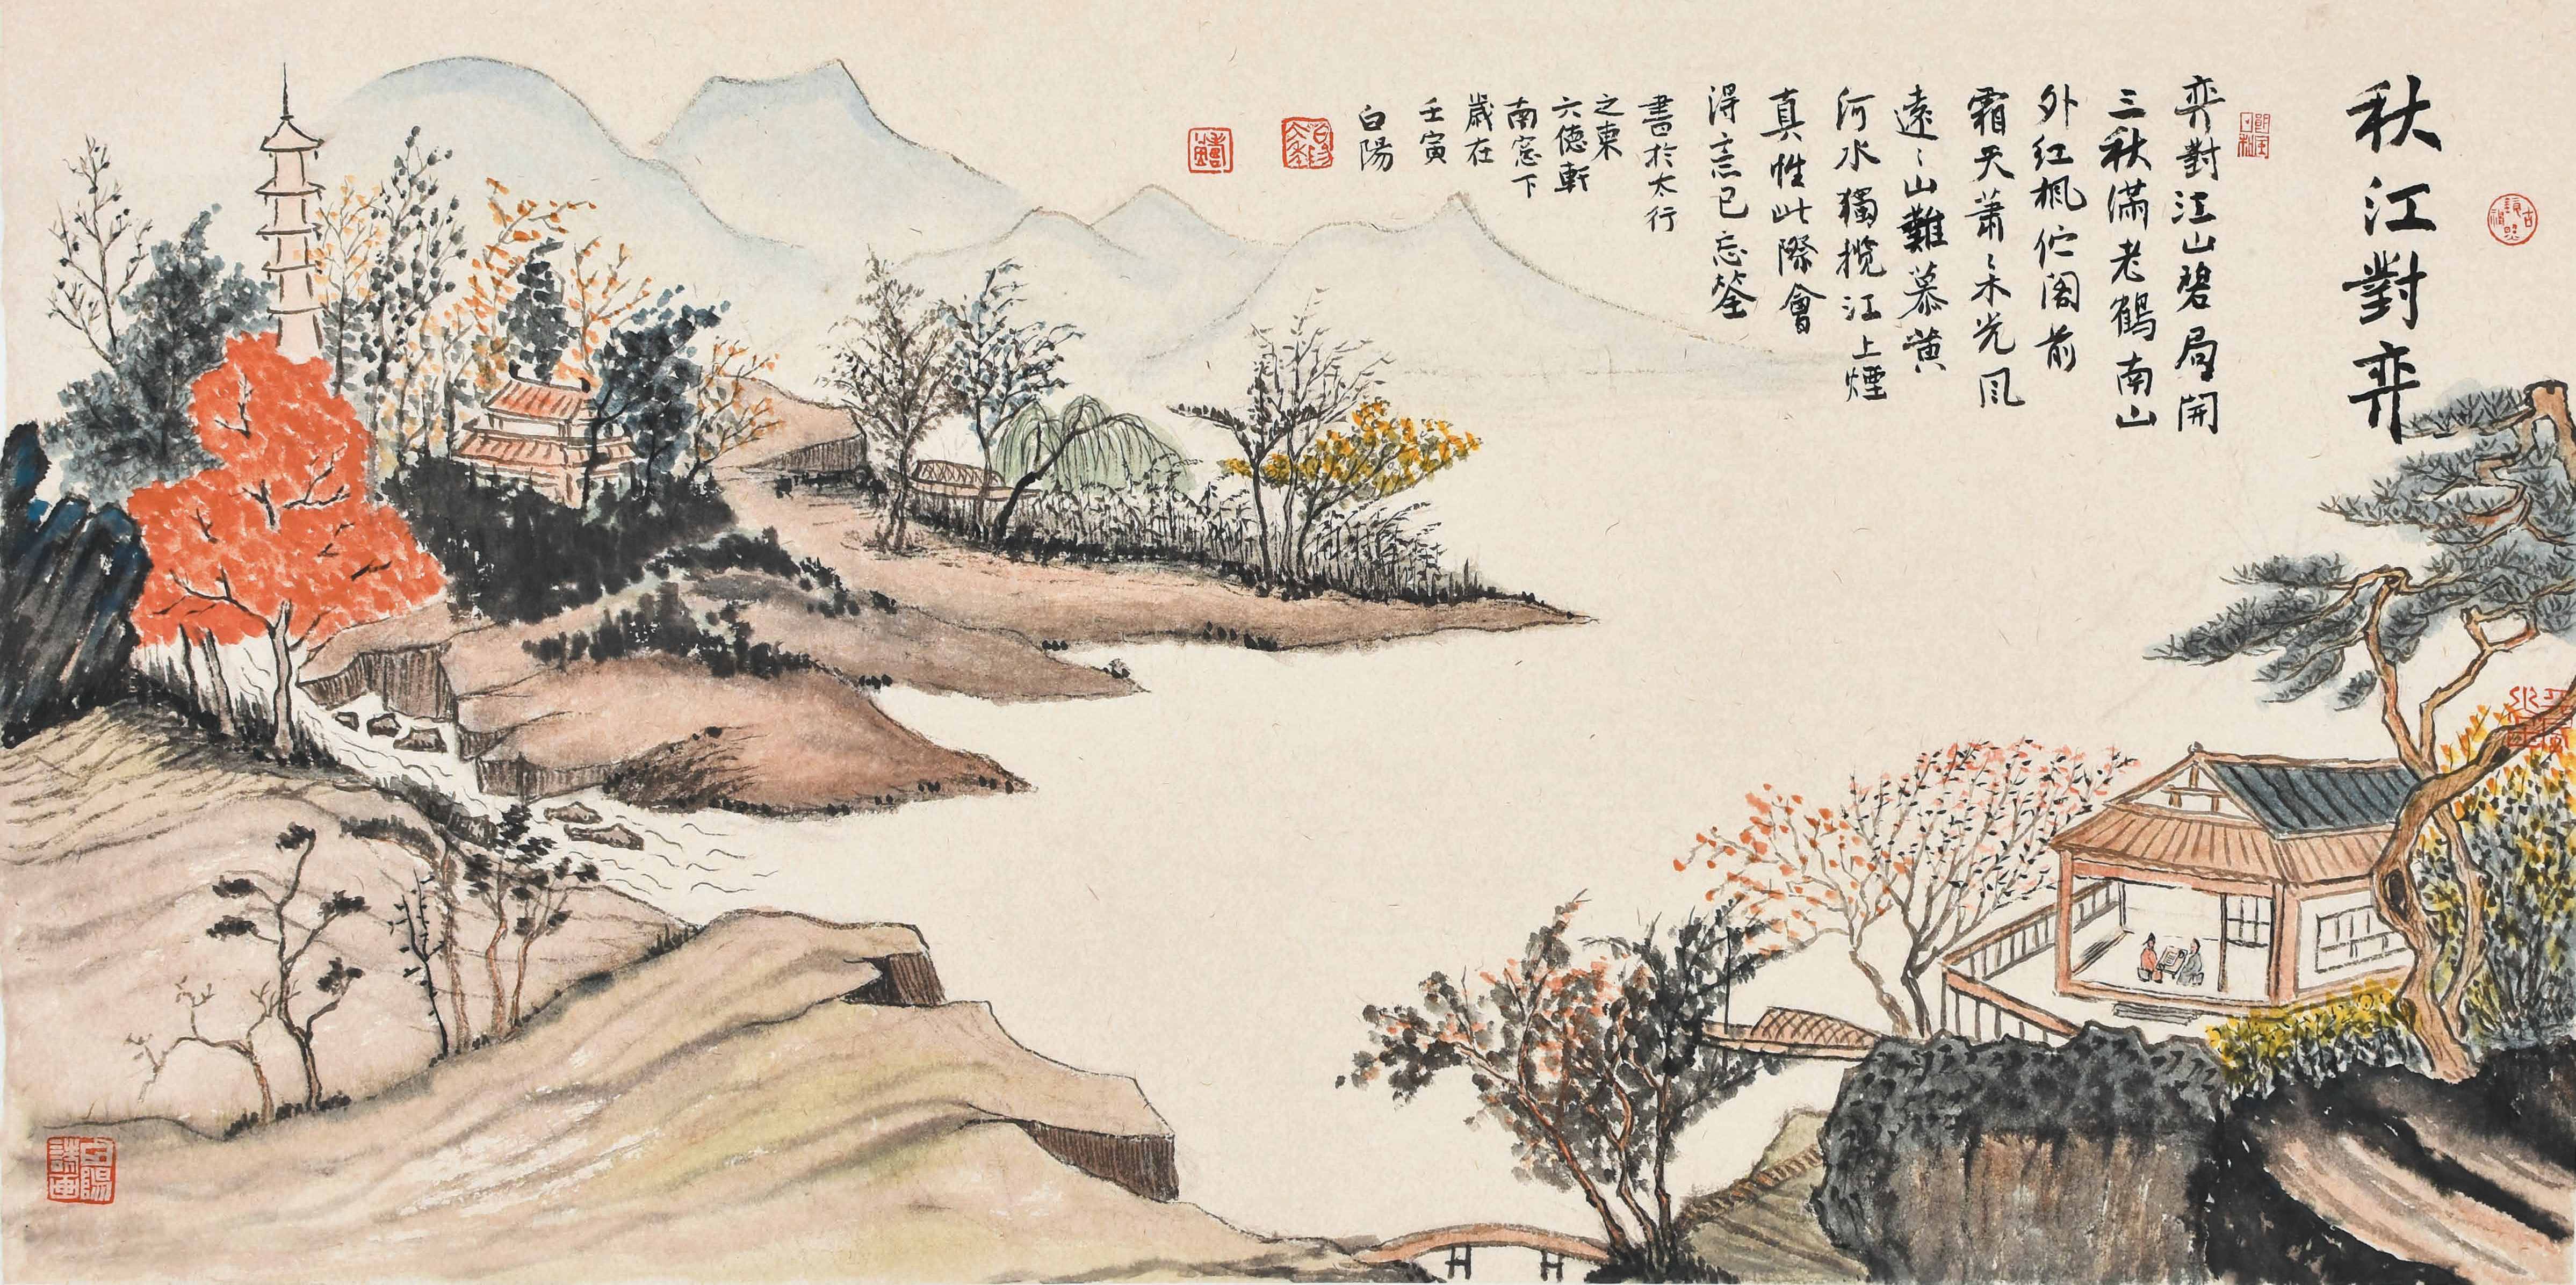 秋江對弈
弈對江山碧局開
三秋滿老鶴南山
外紅楓伫阁前
霜天蕭〻禾光风
遠〻山難慕黄
河水獨揽江上煙
真性此際會
得言已忘筌
書於太行
之東
六德軒
南窓下
歲在
壬寅
白陽